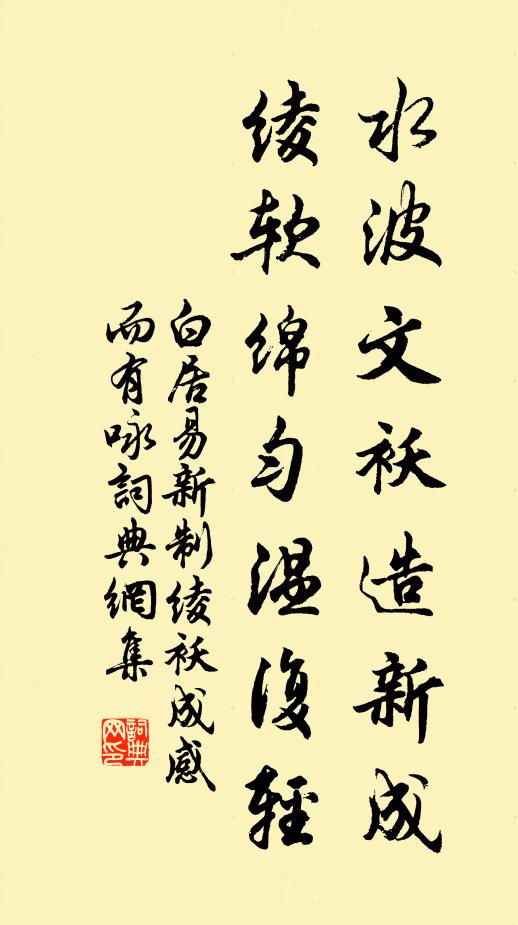 水波文袄造新成
绫软绵匀温復輕
白居易新制绫袄成感
而有咏詞典網集
詞典
网印